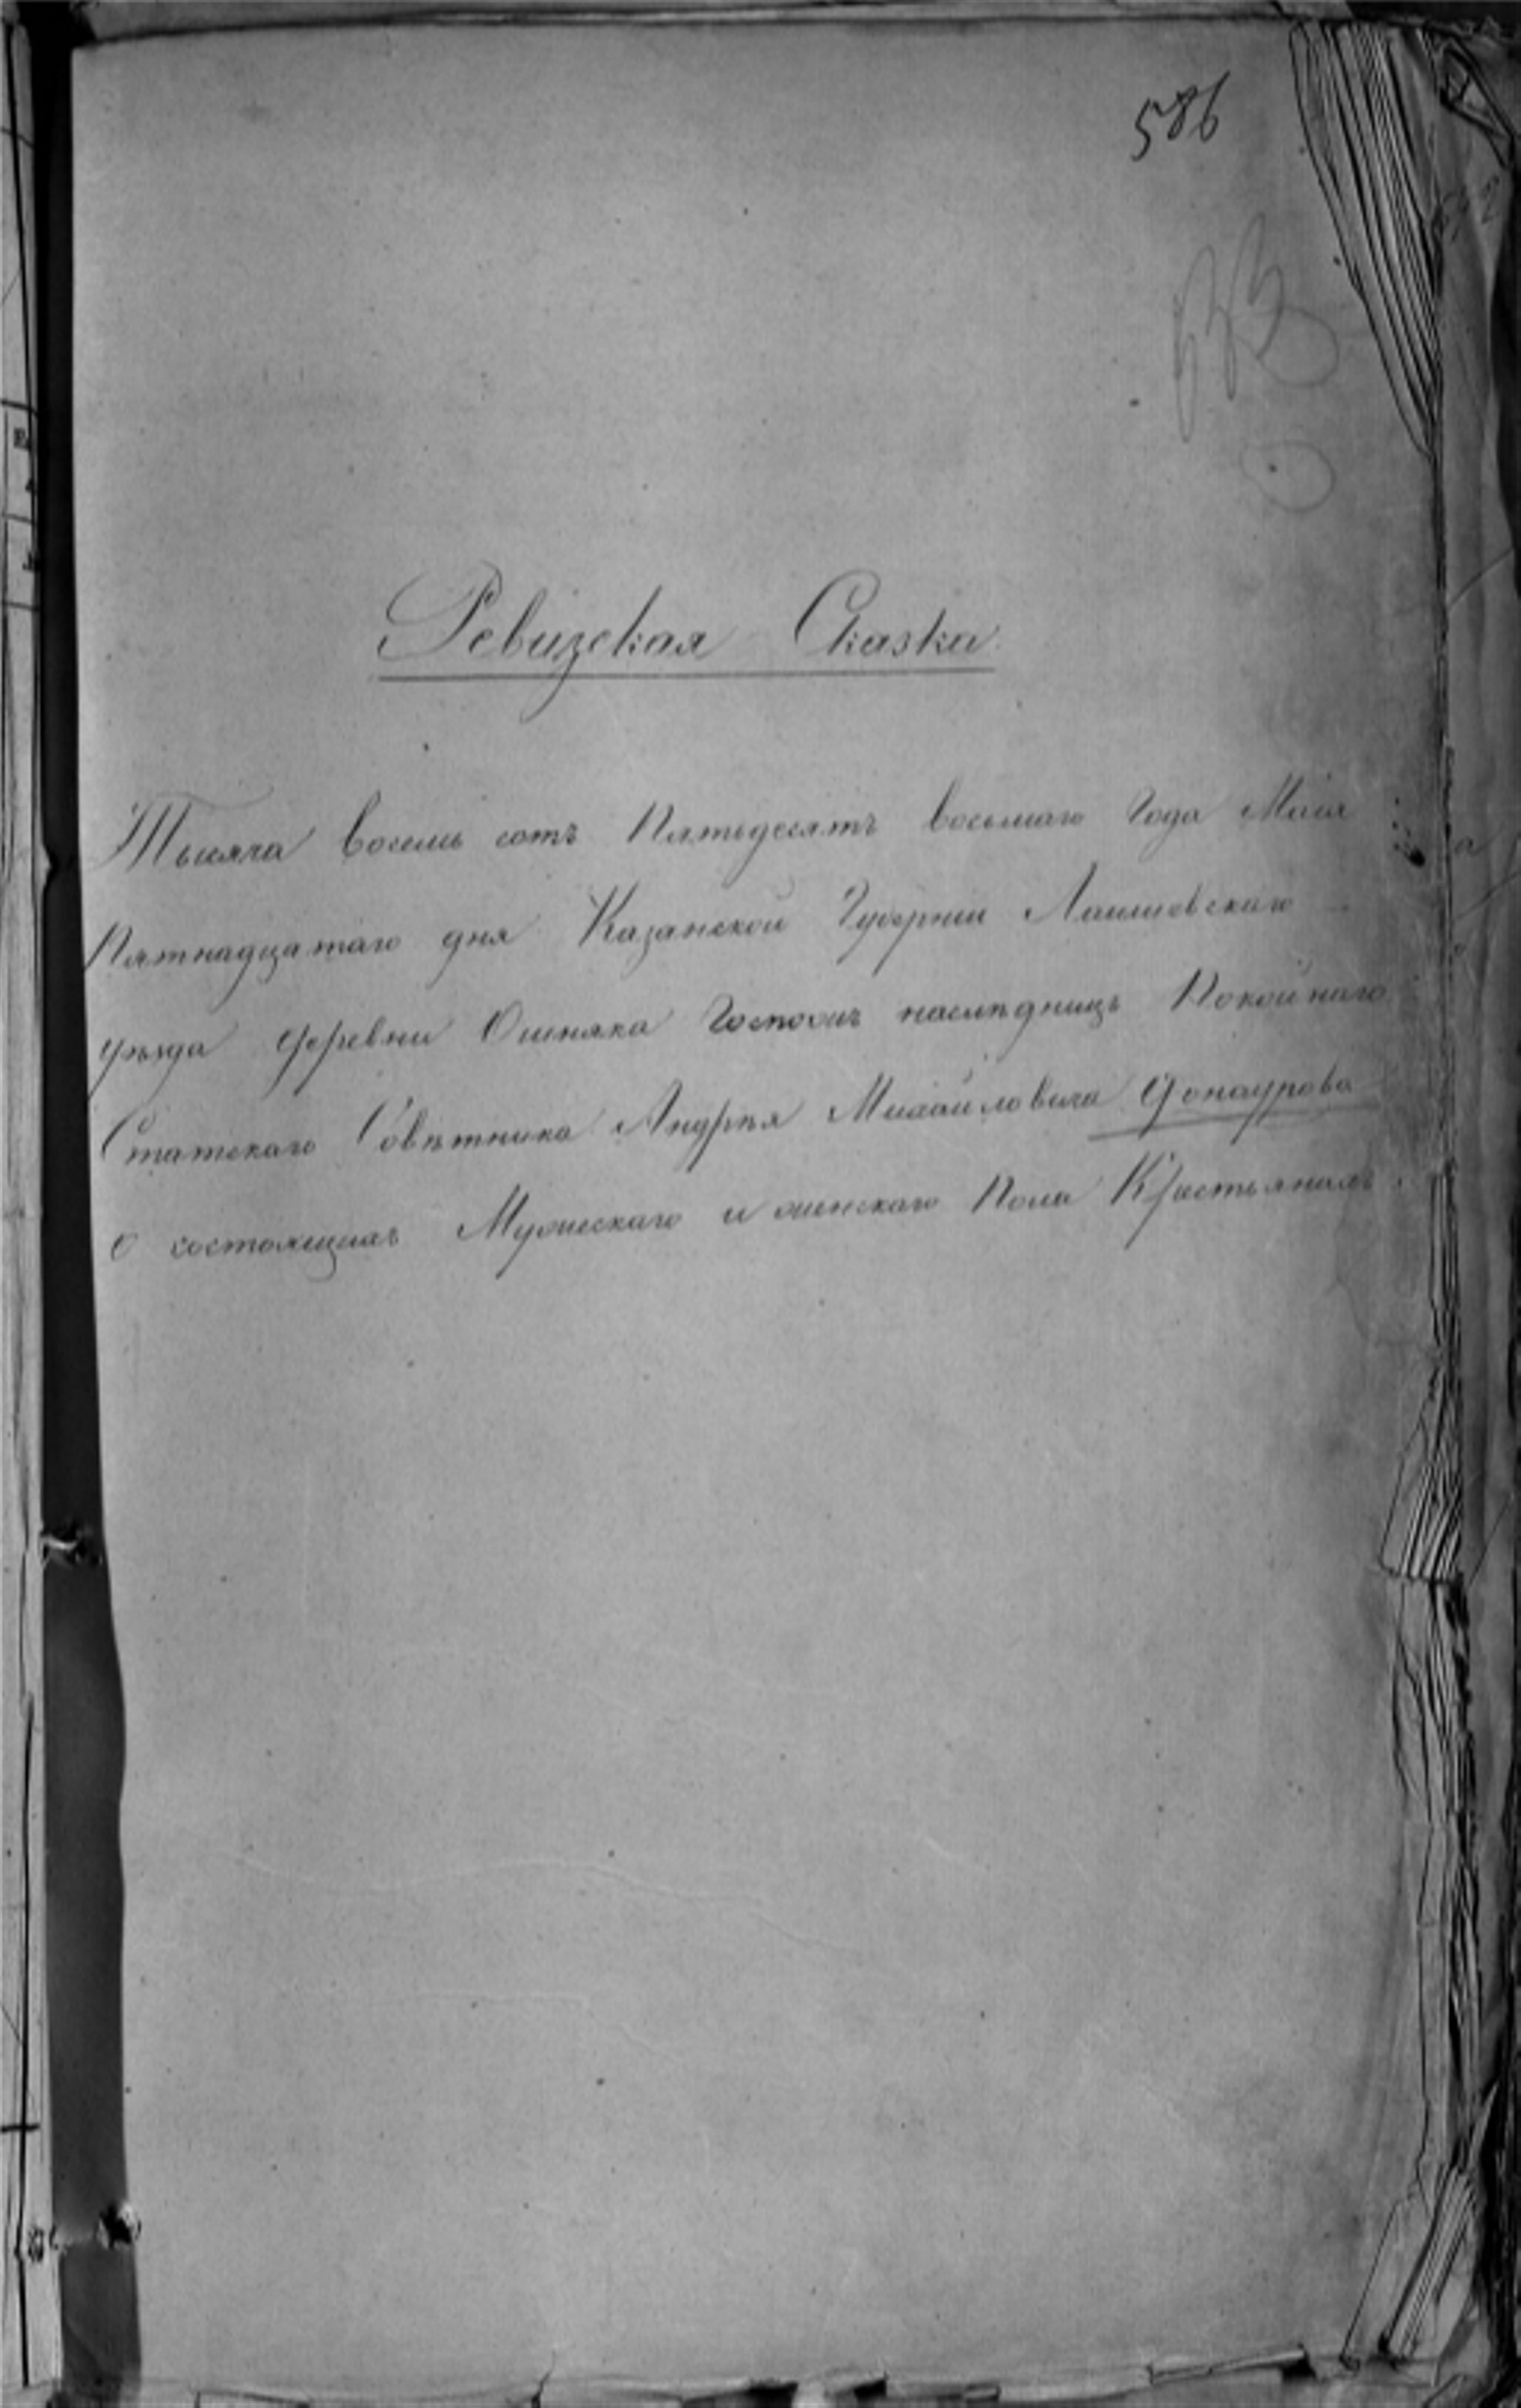 586
Ревизская Сказка
Тысяча восемь сотъ Пятьдесятъ восьмаго Года Маія
Пятнадцатаго дня Казанской Губерніи Лаишевскаго
уѣзда деревни Ошняка Госпожъ наслѣдницъ Покойнаго
Статскаго Совѣтника Андрѣя Михайловича Донаурова
О состоящихъ Мужескаго и женскаго Пола Крестьянахъ